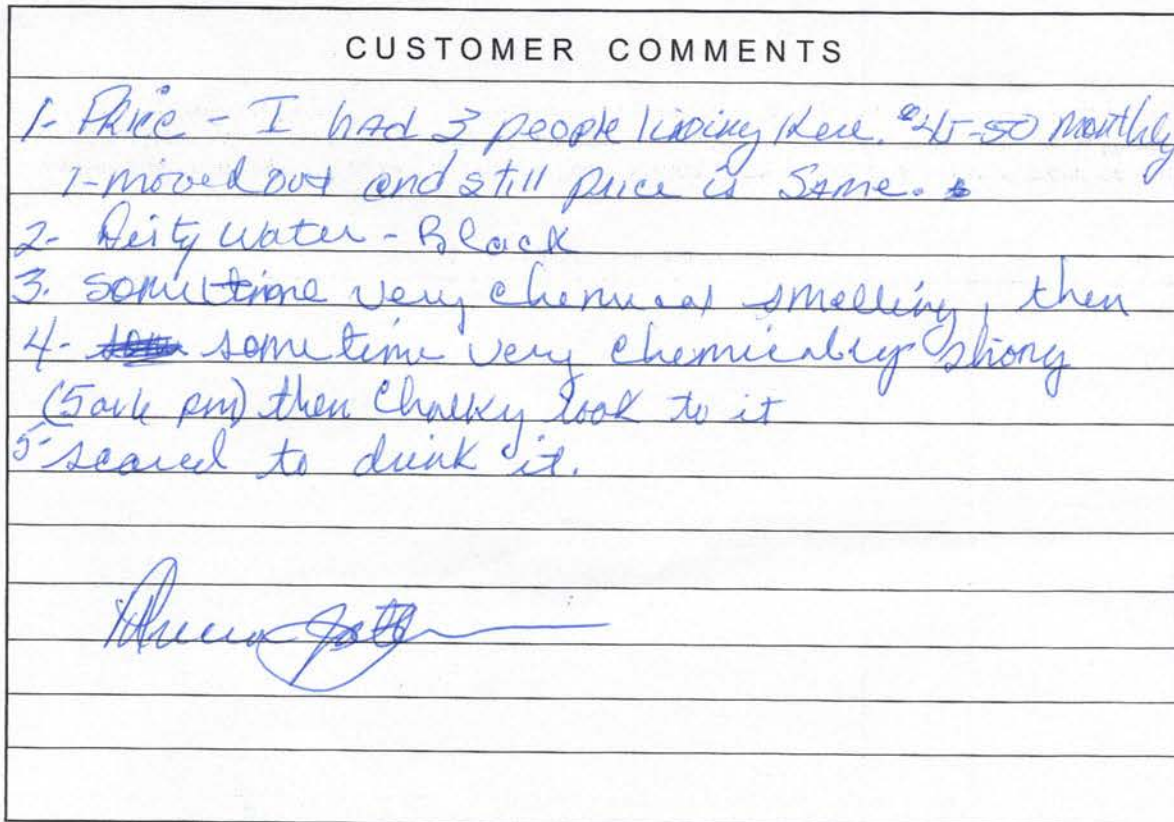 CUSTOMER COMMENTS
1- Price - I had 3 people living here. $45-50 monthly
1-moved out and still price is Same.
2- Dirty Water - Black
3. sometime very chemical smelling, then
4- sometime very chemically strong
pm) then Chalky look to it
5- scared to drink it.